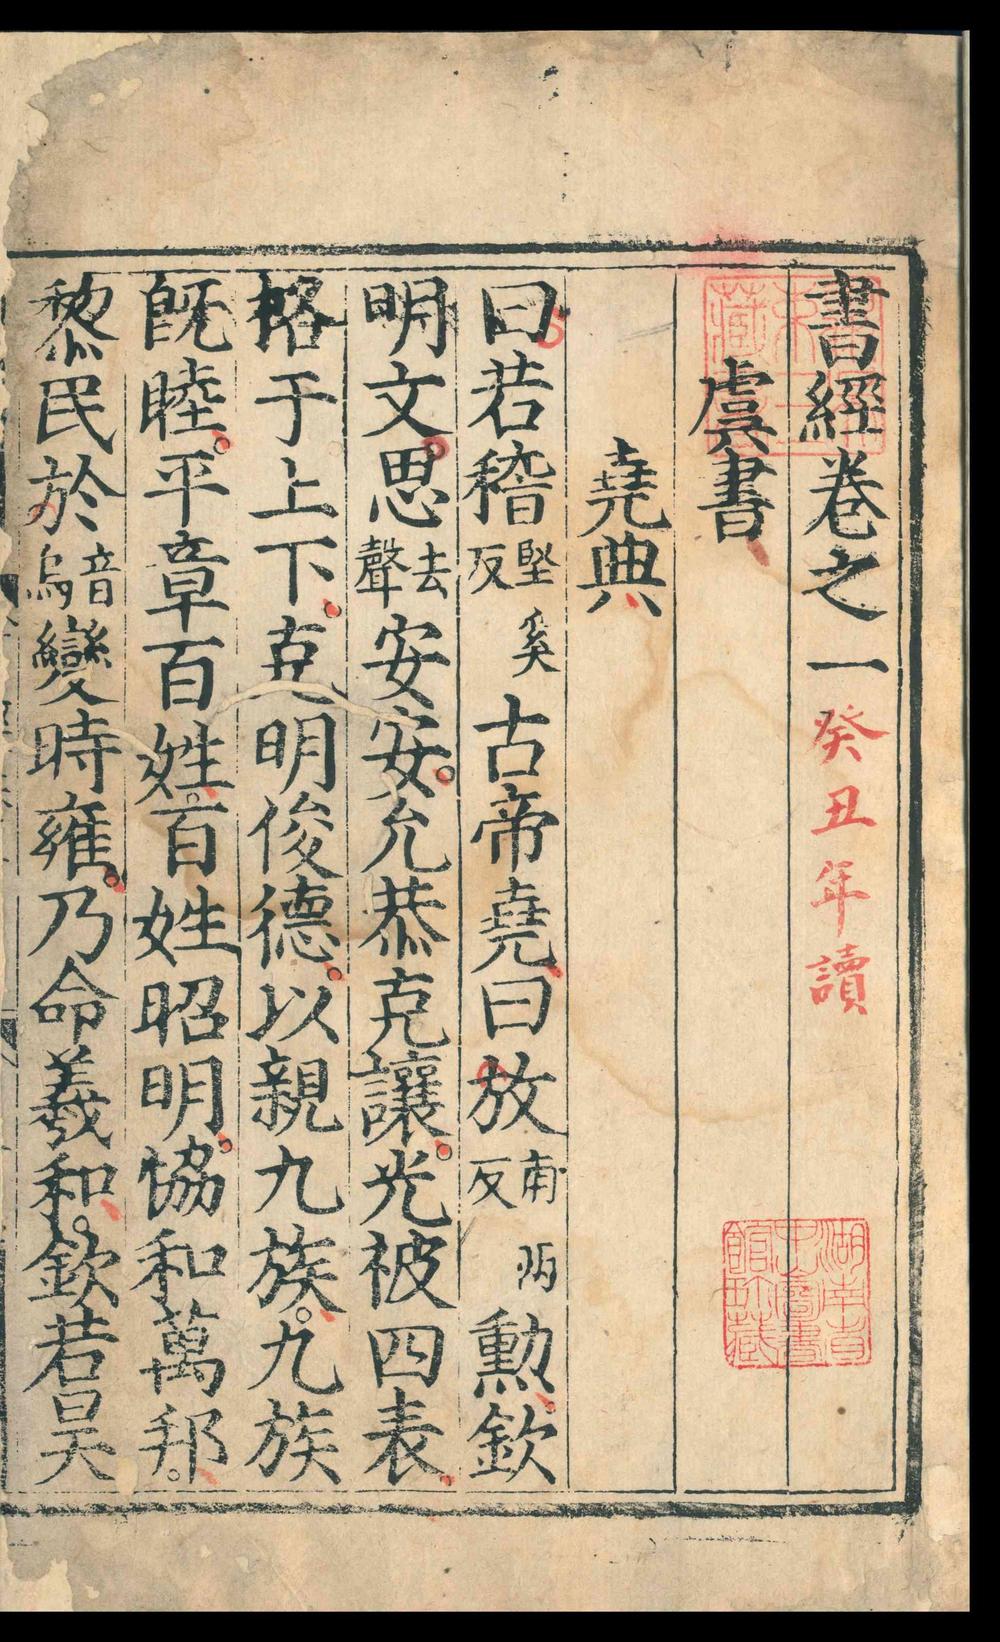 書經卷之一
癸丑年讀
虞書
堯典
曰若稽堅奚反古帝堯曰放甫兩反勳欽
明文思去聲安安允恭克讓光被四表
格于上下克明俊德以親九族九族
旣睦平章百姓百姓昭明協和萬邦
黎民於音烏變時雍乃命羲和欽若昊
湖南省
中山圖書
館珍藏